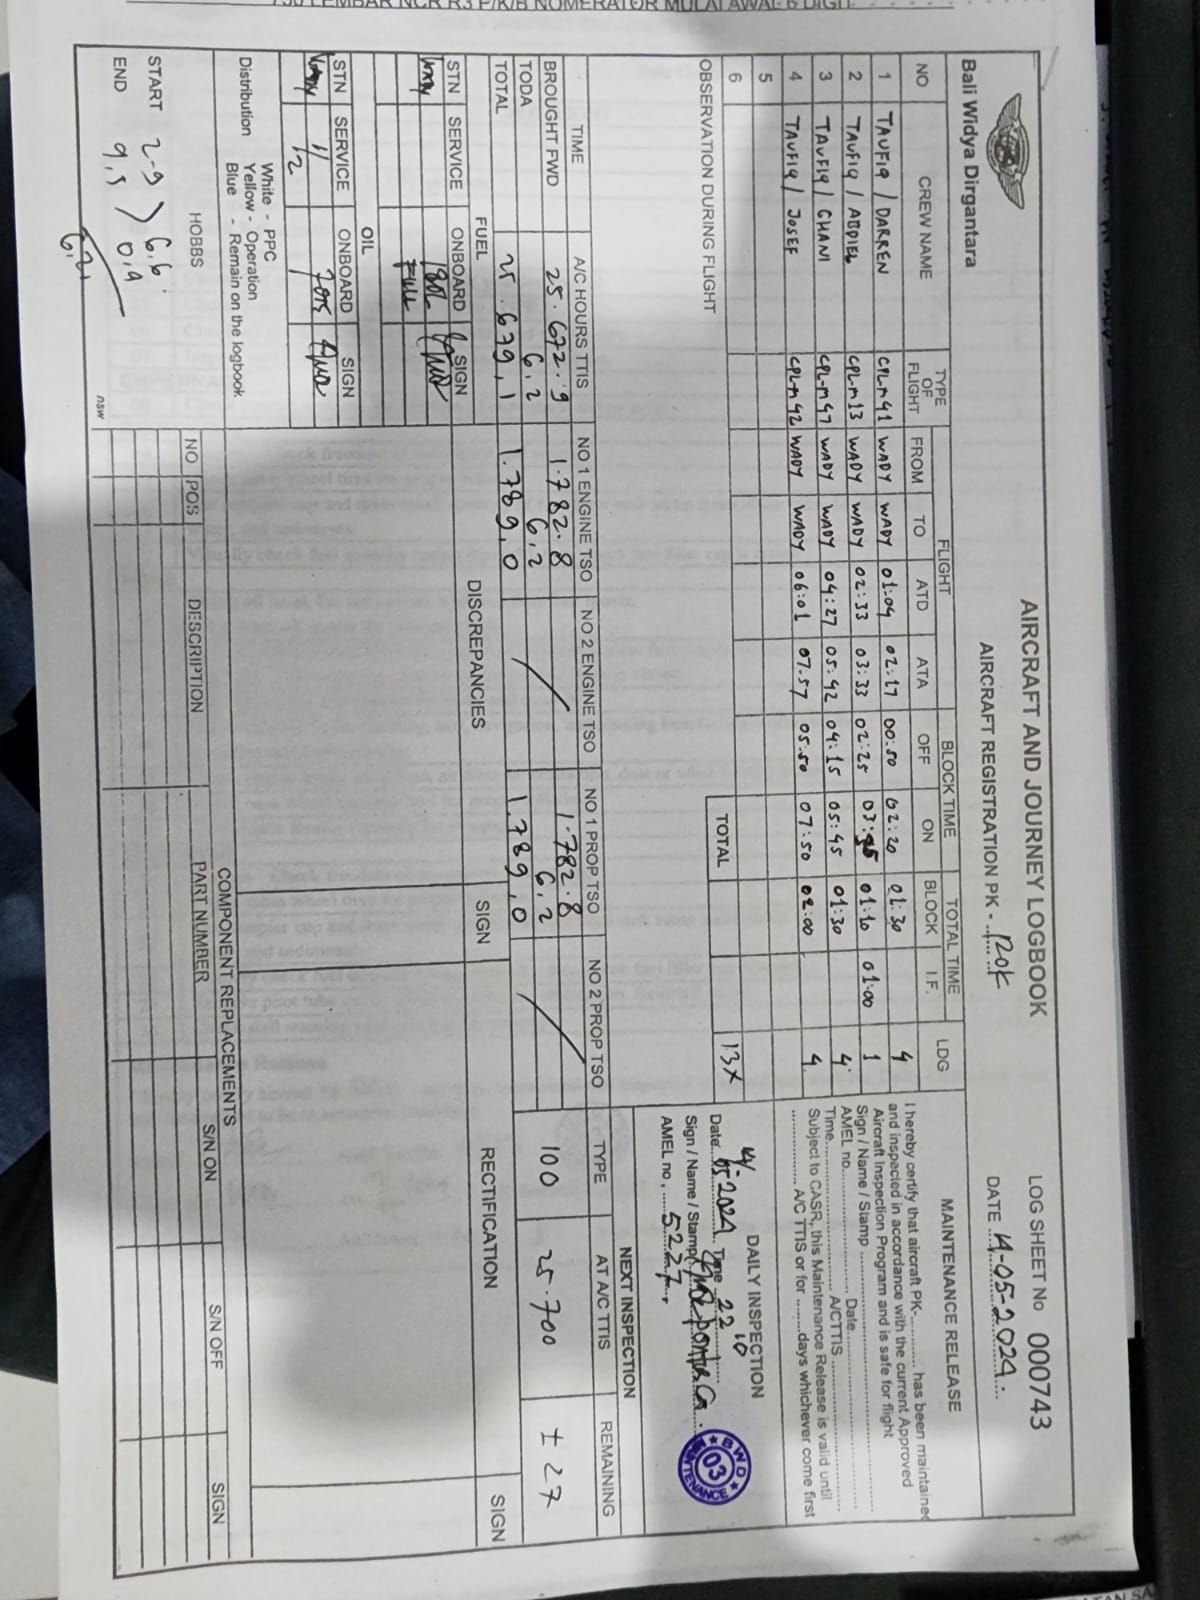 750 LEMBAR NCR R3 P/K/B NOMERATOR MULAI AWAL 6 DIGIT
Bali Widya Dirgantara
AIRCRAFT AND JOURNEY LOGBOOK
AIRCRAFT REGISTRATION PK - ROK
LOG SHEET No 000743
DATE 14-05-2024.
NO CREW NAME TYPE OF FLIGHT FLIGHT BLOCK TIME TOTAL TIME LDG
FROM TO ATD ATA OFF ON BLOCK I.F.
1 TAUFIQ / DARREN CPL-M41 WADY WADY 01:04 02:17 00:50 02:20 01:30 4
2 TAUFIQ / ABDIEL CPL-M13 WADY WADY 02:33 03:33 02:25 01:10 01:00 1
3 TAUFIQ / GHANI CPL-M47 WADY WADY 04:27 05:42 04:15 05:45 01:30 4
4 TAUFIQ / JOSEF CPL-M42 WADY WADY 06:01 07:57 05:50 07:50 02:00 4
5
6
TOTAL 13X
OBSERVATION DURING FLIGHT
MAINTENANCE RELEASE
I hereby certify that aircraft PK-............ has been maintained
and inspected in accordance with the current Approved
Aircraft Inspection Program and is safe for flight
Sign / Name / Stamp
AMEL no. Date
Time A/CTTIS
Subject to CASR, this Maintenance Release is valid until
............ A/C TTIS or for ........days whichever come first
DAILY INSPECTION
Date 14/05-2024 Time 22 10
Sign / Name / Stamp
AMEL no. 5227
BWD
03
MAINTENANCE
TIME A/C HOURS TTIS NO 1 ENGINE TSO NO 2 ENGINE TSO NO 1 PROP TSO NO 2 PROP TSO
BROUGHT FWD 25.672.9 1.782.8 1.782.8
TODA 6.2 6.2 6.2
TOTAL 25.679,1 1.789,0 1.789,0
NEXT INSPECTION
TYPE AT A/C TTIS REMAINING
100 25.700 ± 27
FUEL
STN SERVICE ONBOARD SIGN
WADY 180L
FULL
OIL
STN SERVICE ONBOARD SIGN
WADY 1/2 7QTS
DISCREPANCIES SIGN RECTIFICATION SIGN
Distribution White - PPC
Yellow - Operation
Blue - Remain on the logbook
HOBBS
START 2.9 6.6
END 9.5 0.4
6.2
nsw
COMPONENT REPLACEMENTS
NO POS DESCRIPTION PART NUMBER S/N ON S/N OFF SIGN